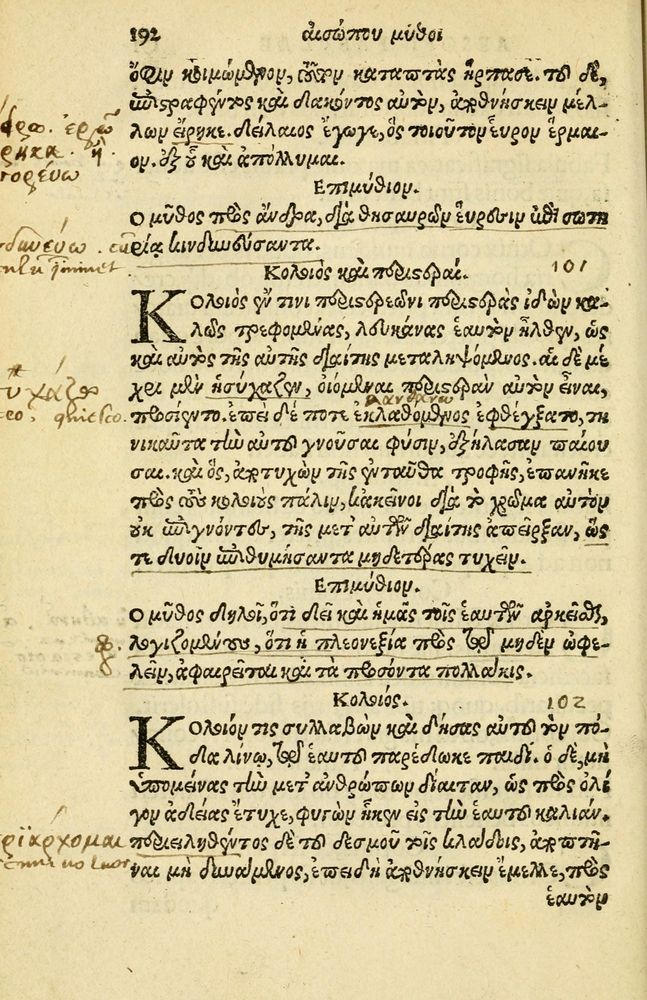 192 αἰσώπου μῦθοι
ὄφιν κοιμώμενον, τοῦτον καταπτὰς ἥρπασε. τοῦ δὲ,
ἐπιστραφέντος καὶ δακόντος αὐτὸν, ἀποθνήσκειν μέλ-
λων εἴρηκε. δείλαιος ἔγωγε, ὃς τοιοῦτον εὗρον ἕρμαι-
ον. ἐξ οὗ καὶ ἀπόλλυμαι.
Επιμύθιον.
Ο μῦθος πρὸς ἄνδρα, διὰ θησαυρῶν εὕρεσιν περὶ σωτη
ρίας κινδυνεύσαντα.
Κολοιὸς καὶ περιστεραί. 101
ΚΟλοιὸς ἔν τινι περιστρεῶνι περιστερὰς ἰδὼν κα-
λῶς τρεφομένας, λευκάνας ἑαυτὸν ἦλθεν, ὡς
καὶ αὐτὸς τῆς αὐτῆς διαίτης μεταληψόμενος. αἱ δὲ μέ
χρι μὲν ἡσύχαζεν, οἰόμεναι περιστερὰν αὐτὸν εἶναι,
προσίεντο. ἐπεὶ δέ ποτε ἐκλαθόμενος ἐφθέγξατο, τη
νικαῦτα τὴν αὐτοῦ γνοῦσαι φύσιν, ἐξήλασαν παίου
σαι. καὶ ὃς, ἀποτυχὼν τῆς ἐνταῦθα τροφῆς, ἐπανῆκε
πρὸς τοὺς κολοιοὺς πάλιν, κἀκεῖνοι διὰ τὸ χρῶμα αὐτὸν
οὐκ ἐπιγνόντες, τῆς μετ' αὐτῶν διαίτης ἀπεῖρξαν, ὥς
τε δυοῖν ἐπιθυμήσαντα μηδετέρας τυχεῖν.
Επιμύθιον.
Ο μῦθος δηλοῖ, ὅτι δεῖ καὶ ἡμᾶς τοῖς ἑαυτῶν ἀρκεῖσθαι,
λογιζομένους, ὅτι ἡ πλεονεξία πρὸς τῷ μηδὲν ὠφε-
λεῖν, ἀφαιρεῖται καὶ τὰ προσόντα πολλάκις.
Κολοιός. 102
ΚΟλοιόν τις συλλαβὼν καὶ δήσας αὐτοῦ τὸν πό-
δα λίνῳ, τῷ ἑαυτοῦ παρέδωκε παιδί. ὁ δὲ, μὴ
ὑπομείνας τὴν μετ' ἀνθρώπων δίαιταν, ὡς πρὸς ὀλί
γον ἀδείας ἔτυχε, φυγὼν ἧκεν εἰς τὴν ἑαυτοῦ καλιάν.
περιειληθέντος δὲ τοῦ δεσμοῦ τοῖς κλάδοις, ἀποπτῆ-
ναι μὴ δυνάμενος, ἐπειδὴ ἀποθνήσκειν ἔμελλε, πρὸς
ἑαυτὸν